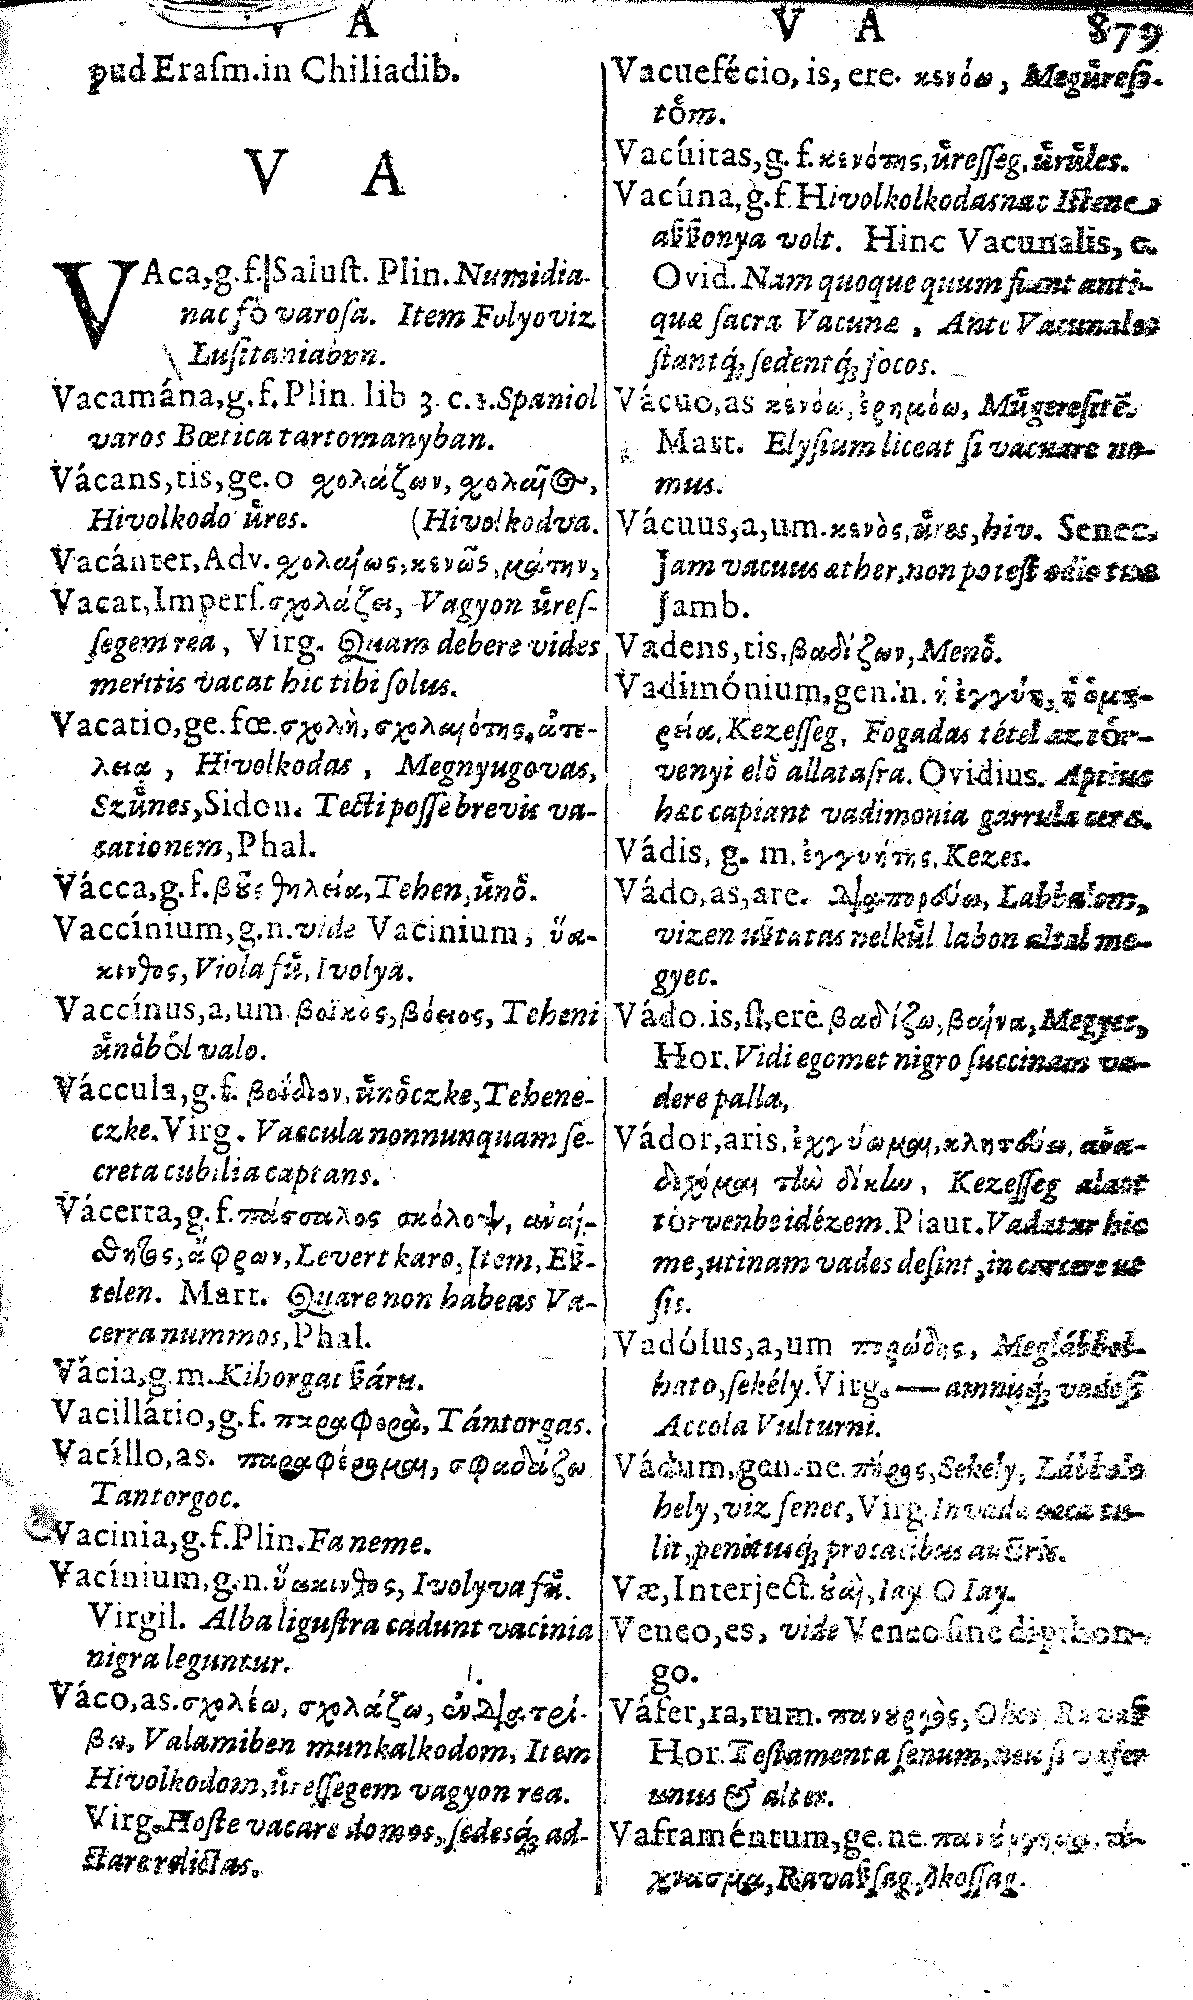 V A
V A 879
pud Eraſm. in Chiliadib.
V A
VAca, g. f. Saluſt. Plin. Numidia-
nac fo̊ varoſa. Item Folyoviz
Luſitaniaban.
Vacamána, g. f. Plin. lib 3. c. 3. Spaniol
varos Bœtica tartomanyban.
Vácans, tis, ge. o χολάζων, χολαῖος,
Hivolkodo ůres. (Hivolkodva.
Vacánter, Adv. χολαίως, κενῶς, μάτην,
Vacat, Imperſ. σχολάζει, Vagyon ůreſ-
ſegem rea, Virg. Quam debere vides
meritis vacat hic tibi ſolus.
Vacatio, ge. fœ. σχολὴ, σχολαιότης, ἀτε-
λεια, Hivolkodas, Megnyugovas,
Szůnes, Sidon. Tecti poſſe brevis va-
cationem, Phal.
Vácca, g. f. βοῦς θηλεία, Tehen, ůno̊.
Vaccínium, g. n. vide Vacinium, ὕα-
κινθος, Viola fů, Ivolya.
Vaccínus, a, um. βοϊκὸς, βόειος, Teheni
ůno̊bo̊l valo.
Váccula, g. f. βοΐδιον, ůno̊czke, Tehene-
czke. Virg. Vaccula nonnunquam ſe-
creta cubilia captans.
Vácerra, g. f. πάσσαλος σκόλοψ, ἀναί-
σθητος, ἄφρων, Levert karo, Item, Ev̊-
telen. Mart. Quare non habeas Va-
cerra nummos, Phal.
Vácia, g. m. Kiborgat ſ̊áru.
Vacillátio, g. f. παραφορὰ, Tántorgas.
Vacíllo, as. παραφέρομαι, σφαδάζω
Tantorgoc.
Vacinia, g. f. Plin. Fa neme.
Vacínium, g. n. ὕακινθος, Ivolyva fů.
Virgil. Alba liguſtra cadunt vacinia
nigra leguntur.
Váco, as. σχολέω, σχολάζω, ἐνδιατρί-
βω, Valamiben munkalkodom, Item
Hivolkodom, ůreſſegem vagyon rea.
Virg. Hoſte vacare domos, ſedesq́; ad-
ſtare relictas.
Vacuefécio, is, ere. κενόω, Megůreſi-
to̊m.
Vacúitas, g. f. κενότης, ůreſſeg, ůrůles.
Vacúna, g. f. Hivolkolkodasnac Iſtene
aſ̊ſ̊onya volt. Hinc Vacunalis, e.
Ovid. Nam quoque quum fiunt anti-
quæ ſacra Vacunæ, Ante Vacunales
ſtantq́; ſedentq́; focos.
Vácuo, as κενόω, ἐρημόω, Můgereſitẽ.
Mart. Elyſium liceat ſi vacuare ne-
mus.
Vácuus, a, um. κενὸς, ůres, hiv. Senec.
Jam vacuus æther, non poteſt odio tuo
Jamb.
Vadens, tis, βαδίζων, Meno̊.
Vadimónium, gen. n. ἡ ἐγγύη,
Kezeſſeg, Fogadas tétel az to̊r-
venyi elo̊ allataſra. Ovidius. Aptius
hæc capiant vadimonia garrula ceræ.
Vádis, g. m. ἐγγυήτης, Kezes.
Vádo, as, are. διαπορεύω, Labbalom,
vizen uſ̊tatas nelkůl labon altal me-
gyec.
Vádo. is, ſi, ere. βαδίζω, βαίνω, Megyec,
Hor. Vidi egomet nigro ſuccinam va-
dere palla,
Vádor, aris, ἐγγύωμαι, κλητεύω, ἀνα-
δέχομαι τὴν δίκην, Kezeſſeg alatt
to̊rvenbe idézem. Plaut. Vadatur hic
me, utinam vades deſint, in carcere ut
ſis.
Vadóſus, a, um πορώδης, Meglábbol-
hato, ſekély. Virg. — amniſq́; vadoſi
Accola Vulturni.
Vádum, gen. ne. πόρος, Sekely, Lábbalo
hely, viz ſenec, Virg. In vada cæca tu-
lit, penituſq́; procacibus auſtris.
Væ, Interject. οὐαὶ, Iay O Iay.
Væneo, es, vide Veneo ſine diphthon-
go.
Váfer, ra, rum. πανοῦργος, Okos Ravaſ̊
Hor. Teſtamenta ſenum, neu ſi vafer
unus & alter.
Vaframéntum, ge. ne. πανούργημα, τέ-
χνασμα, Ravaſ̊ſag, okoſſag.